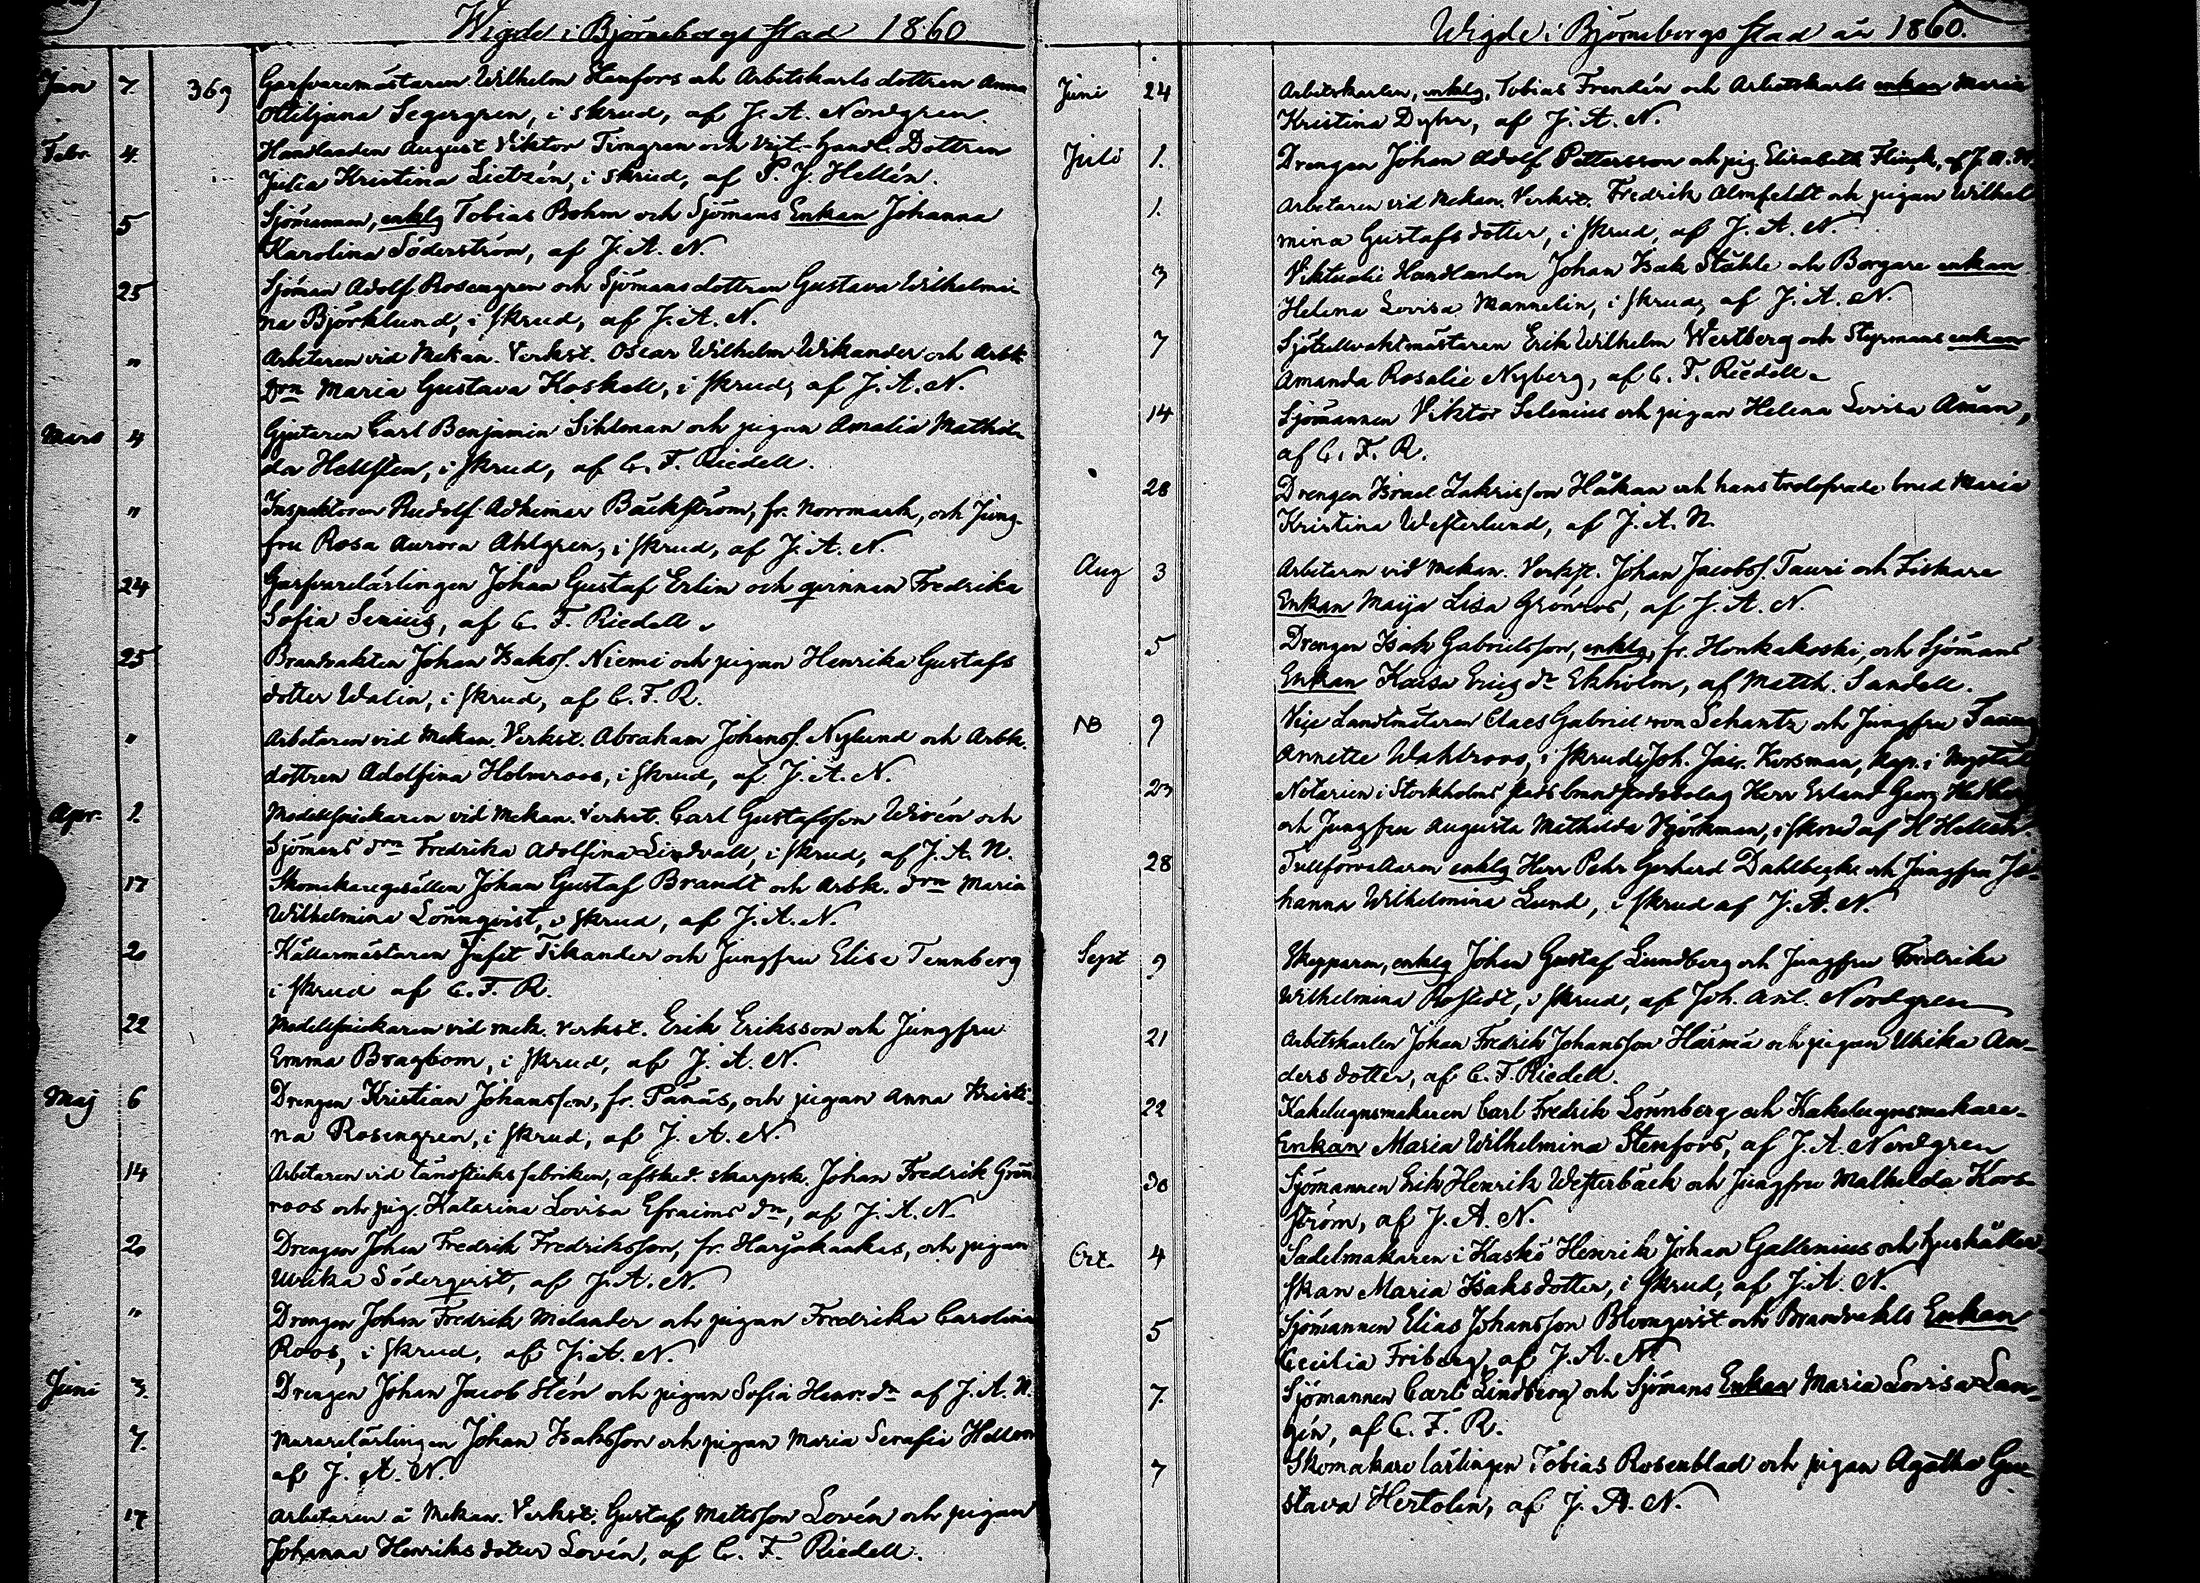 Wigde i Björneborgs stad 1860
Jan 7. Garfvaremästaren Wilhelm Stenfors och Arbetskarls dottren Anna
Ottiljana Segergren, i skrud, af J. A. Nordgren.
Febr. 4. Handlanden August Viktor Timgren och Vict. Handl. Dottren
Julia Kristina Lietzén, i skrud, af P. J. Hellén.
5 Sjömannen, enklg Tobias Bohm och Sjömans Enkan Johanna
Karolina Söderström, af J. A. N.
25 Sjöman Adolf Rosengren och Sjömansdottren Gustava Wilhelmi-
na Björklund, i skrud, af J. A. N.
" Arbetaren vid Mekan. Verkst. Oscar Wilhelm Wikander och Arbk.
Drn Maria Gustava Koskell, i skrud, af J. A. N.
Mars 4 Gjutaren Carl Benjamin Sihlman och pigan Amalia Mathil-
da Hellsten, i skrud, af C. F. Riedell.
" Inspektoren Rudolf Adhimar Bäckström, fr. Norrmark, och Jung-
fru Rosa Aurora Ahlgren, i skrud, af J. A. N.
24 Garfvarelärlingen Johan Gustaf Erlin och qvinnan Fredrika
Sofia Senius, af C. F. Riedell.
25 Brandvakten Johan Isakss. Niemi och pigan Henrika Gustafs
dotter Walin, i skrud, af C. F. R.
" Arbetaren vid Mekan. Verkst. Abraham Johanss. Nylund och Arbk.
dottren Adolfina Holmroos, i skrud, af J. A. N.
Apr. 1. Modellsnickaren vid Mekan. Verkst. Carl Gustafsson Wirén och
Sjömans drn Fredrika Adolfina Lindvall, i skrud, af J. A. N.
17 Skomakaregesällen Johan Gustaf Brandt och Arbk. drn Maria
Wilhelmina Lönnqvist, i skrud, af J. A. N.
20 Källarmästaren Jafet Tikander och Jungfru Elise Tennberg
i skrud af C. F. R.
22 Modellsnickaren vid mek. verkst. Erik Eriksson och Jungfru
Emma Bragbom, i skrud, af J. A. N.
Maj 6 Drengen Kristian Johansson, fr. Panäs, och pigan Anna Kristi-
na Rosengren, i skrud, af J. A. N.
14 Arbetaren vid tändsticksfabriken, afsked. skarpsk. Johan Fredrik Grön
roos och pig. Katarina Lovisa Efraims dr, af J. A. N.
20 Drengen Johan Fredrik Fredriksson, fr. Harjakankas, och pigan
Ulrika Söderqvist, af J. A. N.
" Drengen Johan Fredrik Melander och pigan Fredrika Carolina
Roos, i skrud, af J. A. N.
Juni 3. Drengen Johan Jacob Stén och pigan Sofia Henr. dr af J. A. N.
7. Murarelärlingen Johan Isaksson och pigan Maria Serafia Hellman
af J. A. N.
17 Arbetaren å Mekan. Verkst. Gustaf Mattsson Lovén och pigan
Johanna Henriksdotter Lovén, af C. F. Riedell.
Wigde i Björneborgs stad år 1860.
Juni 24 Arbetskarlen, enklg, Tobias Frendén och Arbetskarls enkan Maria
Kristina Dyhr, af J. A. N.
Juli 1. Drengen Johan Adolf Pettersson och pig. Elisabeth Flinck, af J. A. N.
1. Arbetaren vid Mekan. Verkst. Fredrik Almfeldt och pigan Wilhel
mina Gustafsdotter, i skrud, af J. A. N.
3 Viktualie Handlanden Johan Isak Ståhle och Borgare enkan
Helena Lovisa Mannelin, i skrud, af J. A. N.
7 Sjötullvaktmästaren Erik Wilhelm Westberg och Styrmans enkan
Amanda Rosalie Nyberg, af C. F. Riedell.
14 Sjömannen Viktor Selenius och pigan Helena Lovisa Åman,
af C. F. R.
28 Drengen Israel Zakrisson Håkan och hans trolofvade brud Maria
Kristina Westerlund, af J. A. N.
Aug 3 Arbetaren vid Mekan. Verkst. Johan Jacobss. Tauri och Fiskare
Enkan Maija Lisa Grönroos, af J. A. N.
5 Drengen Isak Gabrielsson, enklg, fr. Honkakoski, och Sjömans
Enkan Kaisa Ericsdr Ekholm, af Matth. Sandell.
NB 9 Vice Landtmätaren Claes Gabriel von Schantz och Jungfru Fanny
Annette Wahlroos, i skrud, Joh. Jac. Korsman, Kapn. i Nystad
23 Notarien i Stockholms stads brandstodsbolag Herr Erland Georg Hedberg
och Jungfru Augusta Mathilda Björkman, i skrud af H Hellén
28 Tullförvaltaren enklg Herr Pehr Gerhard Dahlbeck och Jungfru Jo-
hanna Wilhelmina Lund, i skrud af J. A. N.
Sept 9 Skepparen, enklg Johan Gustaf Lundberg och Jungfru Fredrika
Wilhelmina Rostedt, i skrud, af Joh. Axl. Nordgren
21 Arbetskarlen Johan Fredrik Johansson Härmä och pigan Ulrika An-
dersdotter, af C. F. Riedell.
22 Kakelugnsmakaren Carl Fredrik Lönnberg och Kakelugnsmakare-
Enkan Maria Wilhelmina Stenfors, af J. A. Nordgren
30 Sjömannen Erik Henrik Westerbäck och Jungfru Mathilda Kors-
ström, af J. A. N.
Oct. 4 Sadelmakaren i Kaskö Henrik Johan Gallenius och hushåller-
skan Maria Isaksdotter, i skrud, af J. A. N.
5 Sjömannen Elias Johansson Blomqvist och Brandvakts Enkan
Cecilia Friberg, af J. A. N.
7. Sjömannen Carl Lindberg och Sjömans Enkan Maria Lovisa Lan-
gén, af C. F. R.
7 Skomakare lärlingen Tobias Rosenblad och pigan Agatha Gu-
stava Hertolin, af J. A. N.